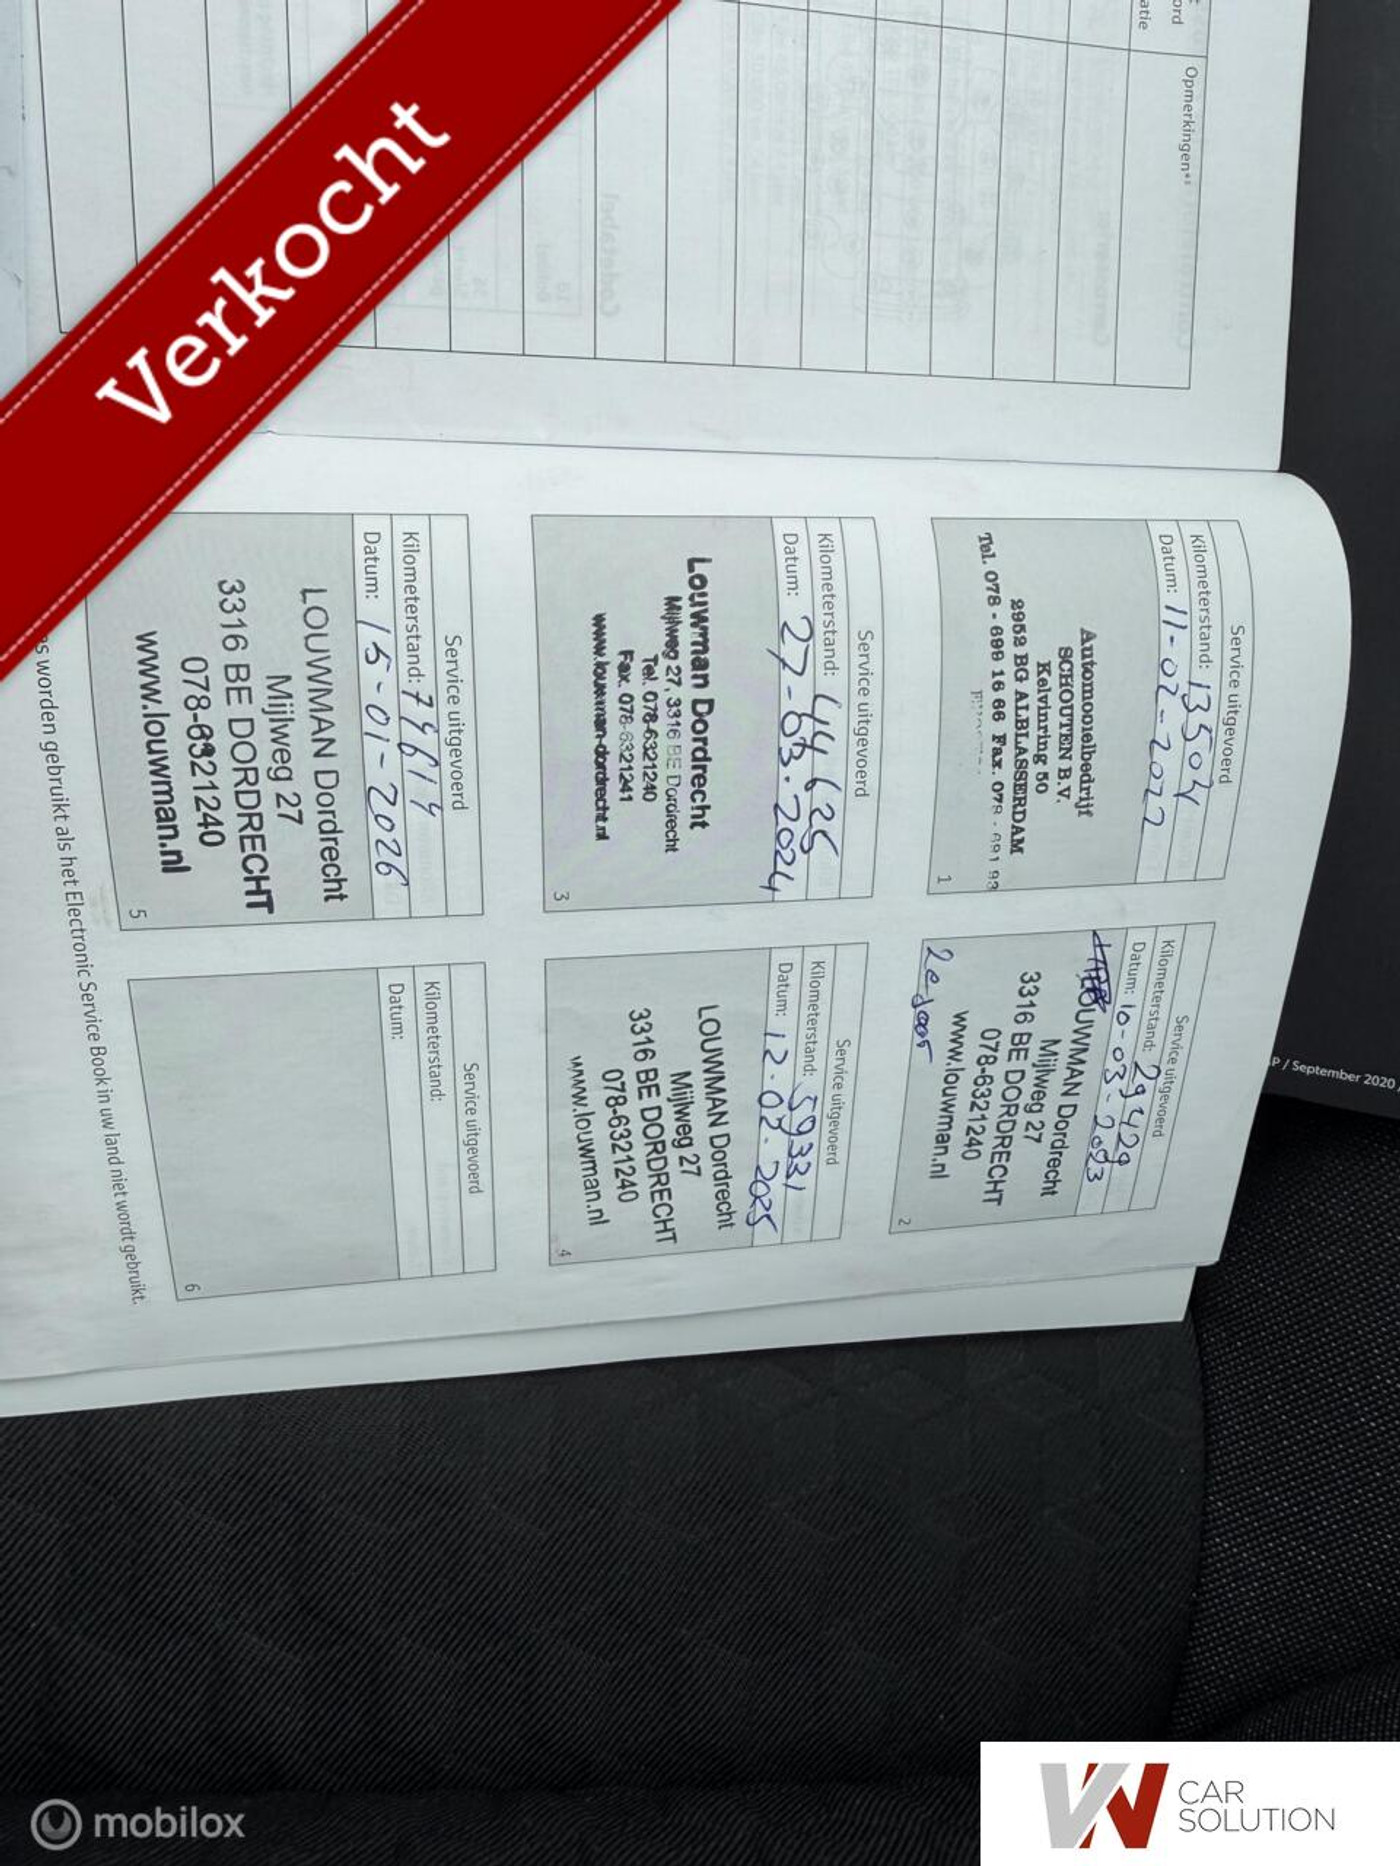 Verkocht
ord
atie
Opmerkingen
Service uitgevoerd
Kilometerstand: 13504
Datum: 11-02-2022
Automobielbedrijf
SCHOUTEN B.V.
Kelvinring 50
2952 BG ALBLASSERDAM
Tel. 078 - 699 16 66 Fax. 078 - 691 93
1
Service uitgevoerd
Kilometerstand: 29429
Datum: 10-03-2023
LOUWMAN Dordrecht
Mijlweg 27
3316 BE DORDRECHT
078-6321240
www.louwman.nl
2
Service uitgevoerd
Kilometerstand: 44625
Datum: 27-03-2024
Louwman Dordrecht
Mijlweg 27, 3316 BE Dordrecht
Tel. 078-6321240
Fax. 078-6321241
www.louwman-dordrecht.nl
3
Service uitgevoerd
Kilometerstand: 59331
Datum: 12-02-2025
LOUWMAN Dordrecht
Mijlweg 27
3316 BE DORDRECHT
078-6321240
www.louwman.nl
4
Service uitgevoerd
Kilometerstand:
Datum: 15-01-2026
LOUWMAN Dordrecht
Mijlweg 27
3316 BE DORDRECHT
078-6321240
www.louwman.nl
5
Service uitgevoerd
Kilometerstand:
Datum:
6
es worden gebruikt als het Electronic Service Book in uw land niet wordt gebruikt.
P / September 2020
mobilox
VW CAR
SOLUTION